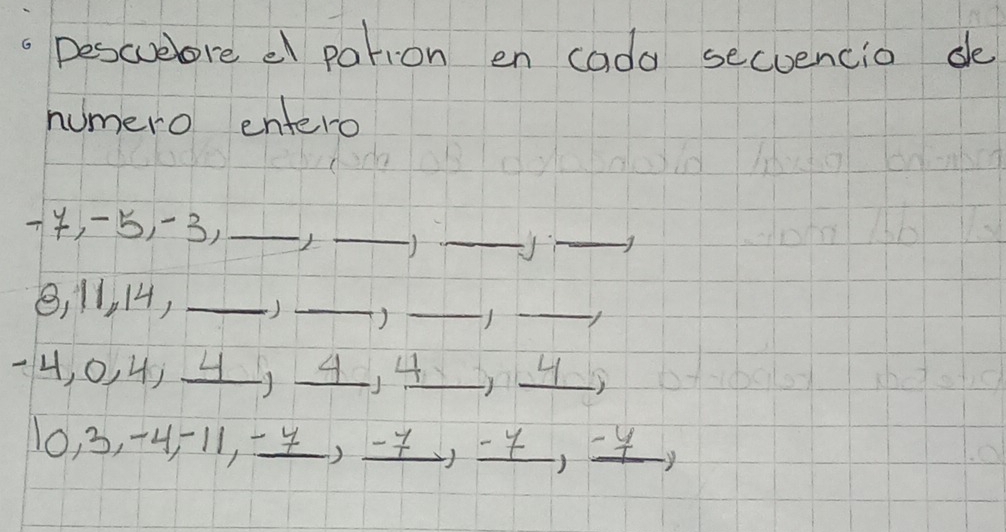 ° Descuebre el patron en cada secuencia de
numero entero
-7, -5, -3, __, __, __, __,
8, 11, 14, __, __, __, __,
-4, 0, 4, 4, 4, 4, 4,
10, 3, -4, -11, -7, -7, -7, -7,